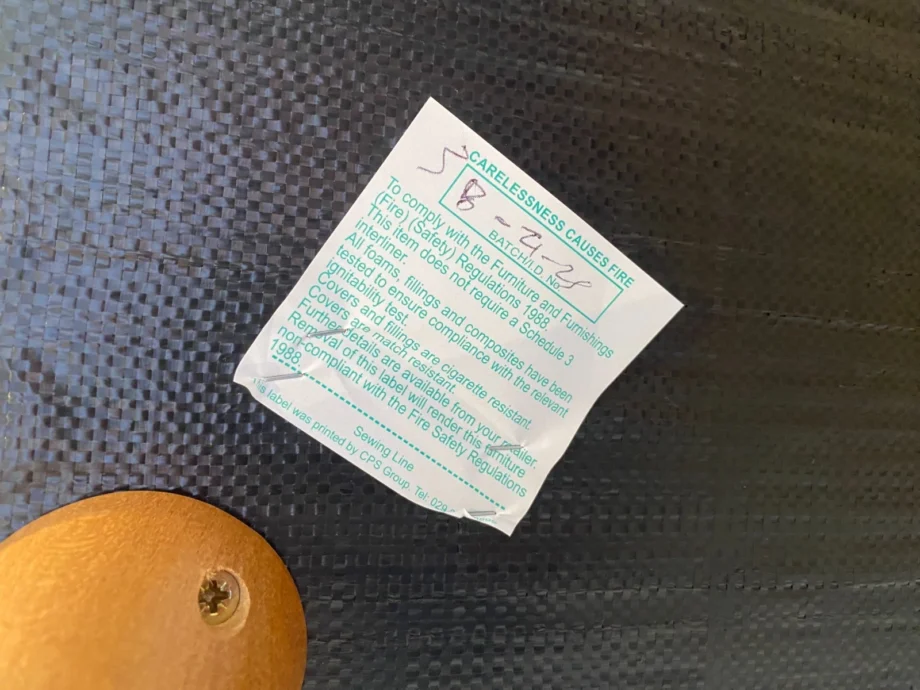 CARELESSNESS CAUSES FIRE
BATCH/I.D. No
To comply with the Furniture and Furnishings
(Fire) (Safety) Regulations 1988.
This item does not require a Schedule 3
interliner.
All foams, fillings and composites have been
tested to ensure compliance with the relevant
ignitability test.
Covers and fillings are cigarette resistant.
Covers are match resistant.
Further details are available from your retailer.
Removal of this label will render this furniture
non-compliant with the Fire Safety Regulations
1988.
Sewing Line
This label was printed by CPS Group Tel: 029